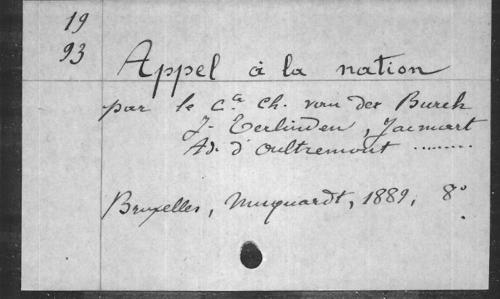 19
93
Appel à la nation
par le Cte Ch. van der Burch
J. Terlinden, Jacmart
Ad. d'Oultremont ........
Bruxelles, Muquardt, 1889, 8°